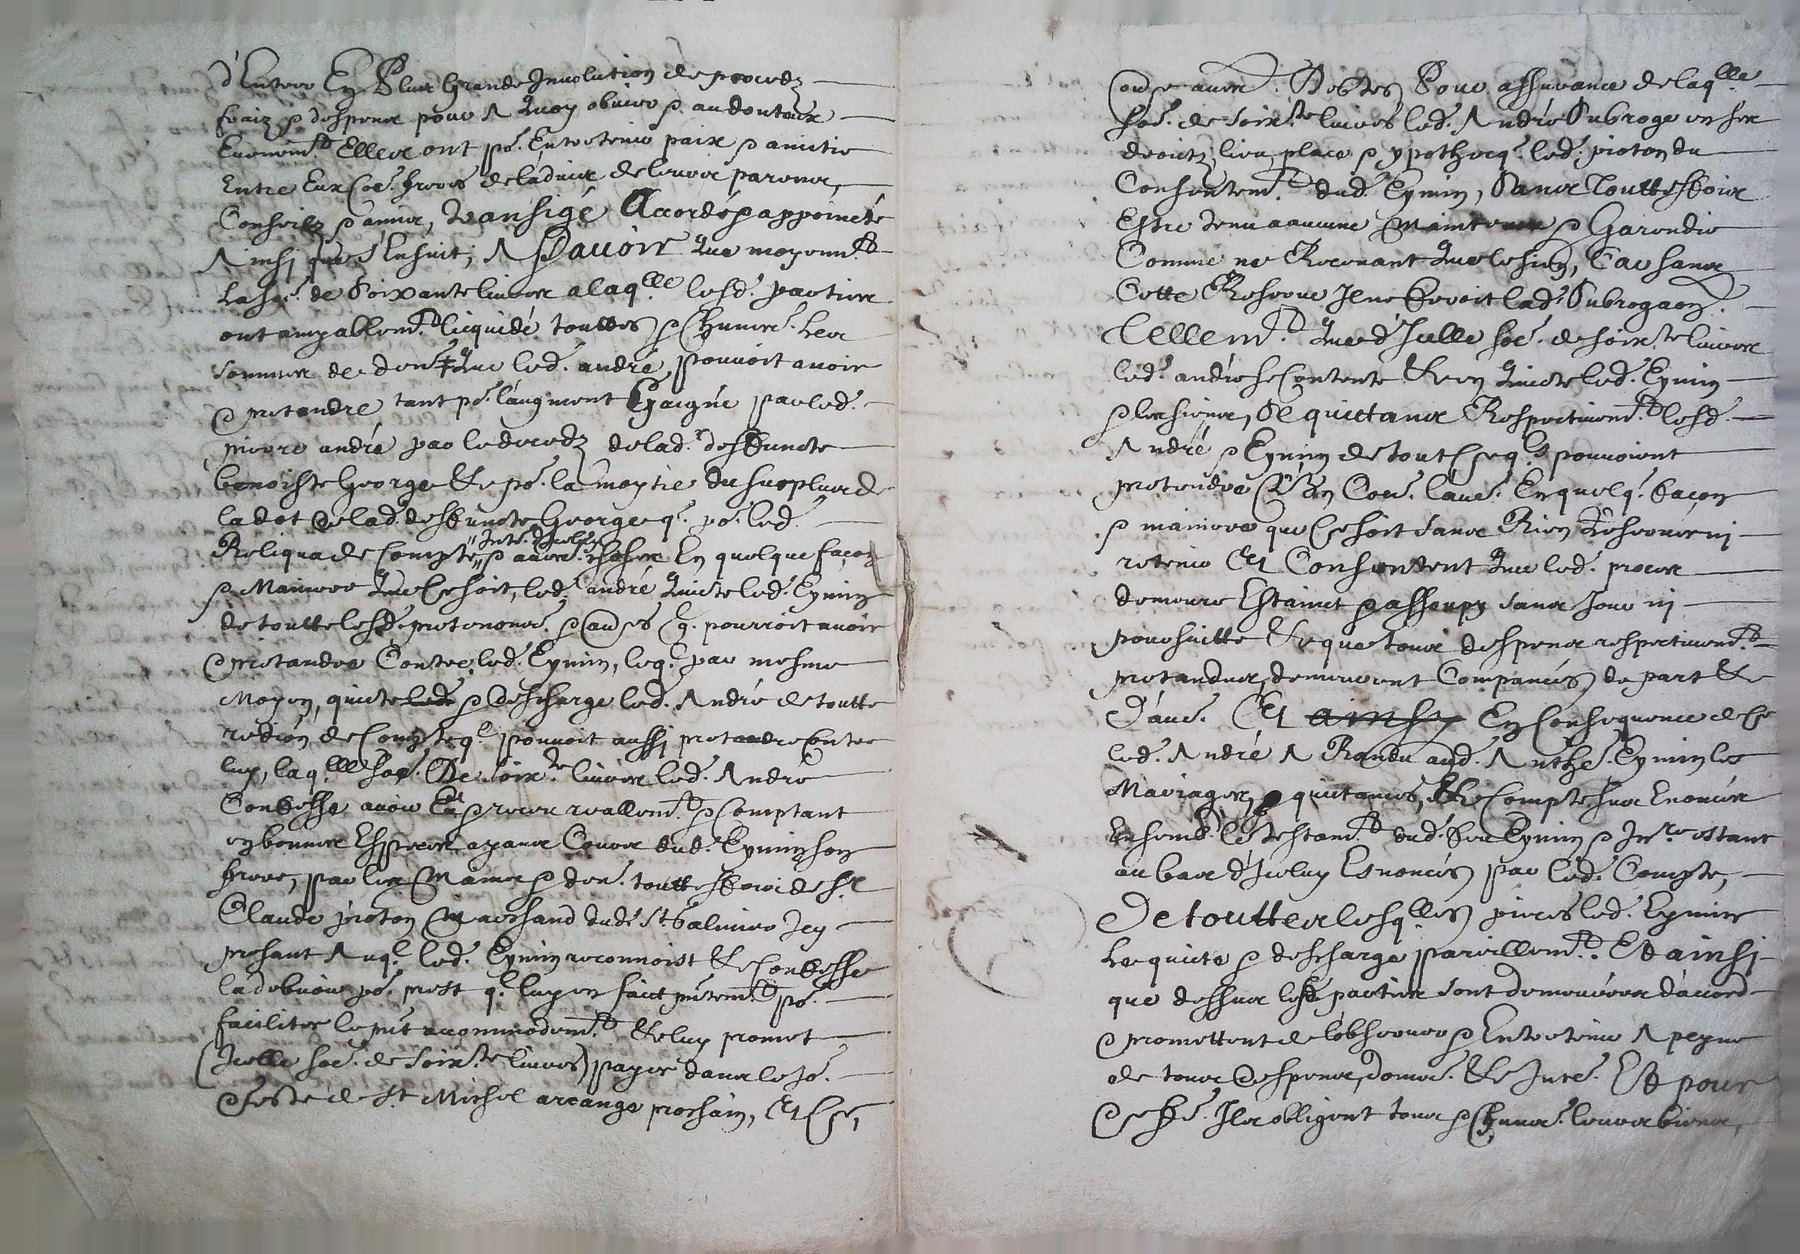 d'Entrer En Plus Grande Involution de procedz
fraiz & despens pour A Quoy obvier & au doubteux
Evenem.t Elles ont po.r Entretenir paix & amitié
Entre Eux Co.e freres de l'advis de leurs parens,
Conseilz & amis, transigé Accordé & appoincté
Ainsi que s'Ensuit, A Sçavoir Que moyenn.t
La So.e de Soixante livres a laq.lle lesd. parties
ont amyablem.t licquidé touttes & Chunes. les
sommes de den.s Que led. andré, pouvoit avoir
& pretandre tant po.r l'augment Gaigné par led.
pierre andré par le decedz de lad. deffuncte
benoiste George & po.r la moytie du surplus de
la dot de lad. deffuncte George q.e po.r led.
Reliqua de Compte & autres choses En quelque façon
& Maniere Que Ce soit, led. andré Quicte led. Eymin
de toutte lesd. pretentions & causes q. pourroit avoir
& pretandre Contre led. Eymin, leq.l par mesme
Moyen, quicte & descharge led. André de toutte
redion de Compte q.l pouvoit aussi pretandre Contre
luy, laq.lle So.e De soix.te livres led. André
Confesse avoir Eu & receu reallem.t & Comptant
en bonnes Especes ayans Cours dud. Eymin son
frere, par les Mains & den. touttesfois de S.r
Claude pioton Marchand dud. St. Salmier Icy
presant Auq.l led. Eymin reconnoist & Confesse
la debvoir po.r prest q.l luy en faict pntem.t po.r
faciliter le pnt accommodem.t & luy promet
(Icelle So.e de soix.te livres) payer dans le jo.r
& feste de St. Michel arcange prochain, Et Ce,
Pour assurance de laq.lle
So.e de soix.te livres led. André Subroge en ses
droictz, lieu, place & ypotheq. led. pioton du
Consentem.t dud. Eymin, Sans touttesfois
Estre tenu a aucune Maintenue & Garendie
Comme ne Recevant Que le sien, Car sans
Cette Reserve Il ne feroit lad. Subrogaon.
Tellem.t Que d'Icelle So.e de soix.te livres
led. andré se Contente & en Quicte led. Eymin
& les siens, Se quittans Respectivem.t lesd.
André & Eymin de tout Ce q.lz pouvoient
pretendre Co.e l'au.e En quelq. façon
& maniere que Ce soit sans Rien Reserver ni
retenir Et Consentent Que led. proces
demeure Estainct & assoupy sans Jour ni
poursuitte & que tous despens respectivem.t
pretandus, demeurent Compancés de part &
D'au.e Et ainsy En Consequence de Ce
led. André A Randu aud. Anthe. Eymin les
Mariages, quictances, & Comptes sus Enoncés
Ensemb. le testam.t dud. feu Eymin & Inre. estant
au bas d'Iceluy Esnoncés par led. Compte,
De touttes lesq.lles pieces led. Eymin
Le quicte & descharge pareillem.t. Et ainsi
que dessus lesd. parties sont demeurées d'accord
& promettent de l'observer & Entretenir A peyne
de tous despens, doma. & Inte. Et pour
Ils obligent tous & Chuns. leurs biens,